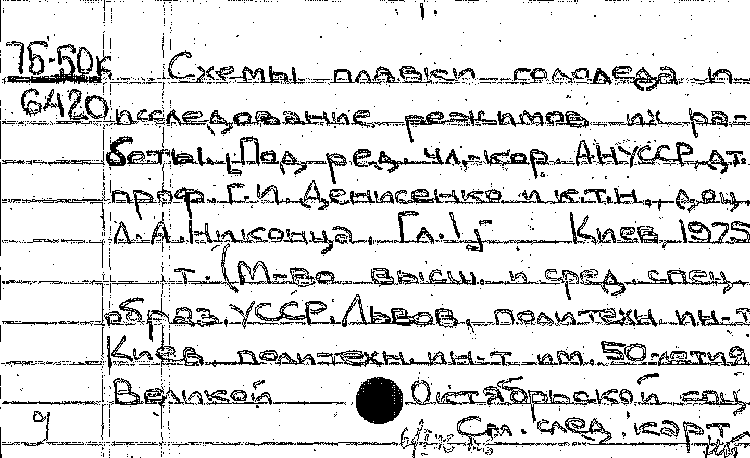 1.
75-50к Схемы плавки гололеда и
6420 исследование режимов их ра-
боты. [Под ред. чл.-кор. АНУССР, дт.
проф. Г.И. Денисенко и к.т.н., доц.
Л.А. Никонца. Гл. 1, 5 Киев, 1975
т. (М-во высш. и сред. спец.
образ. УССР. Львов. политехн. ин-т
Киев. политехн. ин-т им. 50-летия
Великой Октябрьской соц
См. след. карт